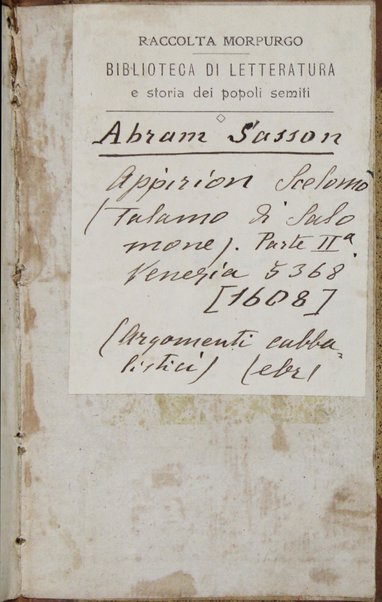 RACCOLTA MORPURGO
BIBLIOTECA DI LETTERATURA
e storia dei popoli semiti
Abram Sasson
Appirion Scelomò
(Talamo di Salo
mone). Parte IIª
Venezia 5368
[1608]
(Argomenti cabba-
listici) (ebr)